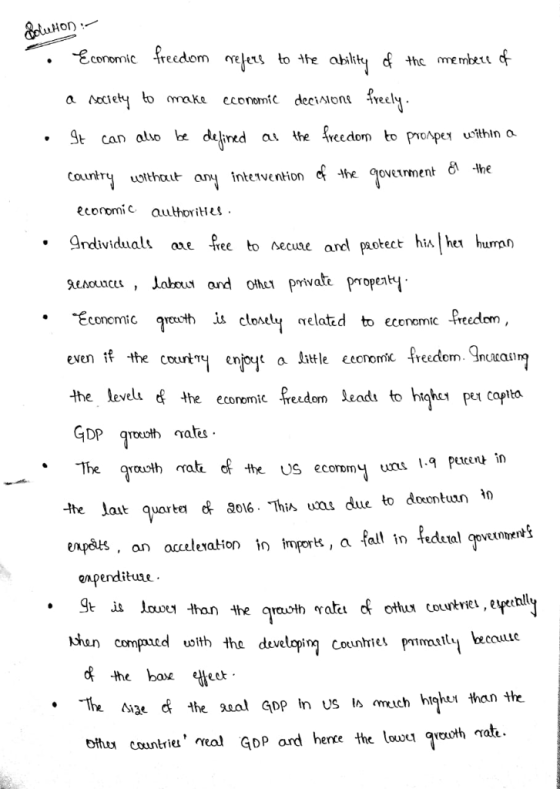 Solution :-
• Economic freedom refers to the ability of the members of
a society to make economic decisions freely.
• It can also be defined as the freedom to prosper within a
country without any intervention of the government or the
economic authorities.
• Individuals are free to secure and protect his/her human
resources, labour and other private property.
• Economic growth is closely related to economic freedom,
even if the country enjoys a little economic freedom. Increasing
the levels of the economic freedom leads to higher per capita
GDP growth rates.
• The growth rate of the US economy was 1.9 percent in
the last quarter of 2016. This was due to downturn in
exports, an acceleration in imports, a fall in federal government's
expenditure.
• It is lower than the growth rates of other countries, especially
when compared with the developing countries primarily because
of the base effect.
• The size of the real GDP in US is much higher than the
other countries' real GDP and hence the lower growth rate.